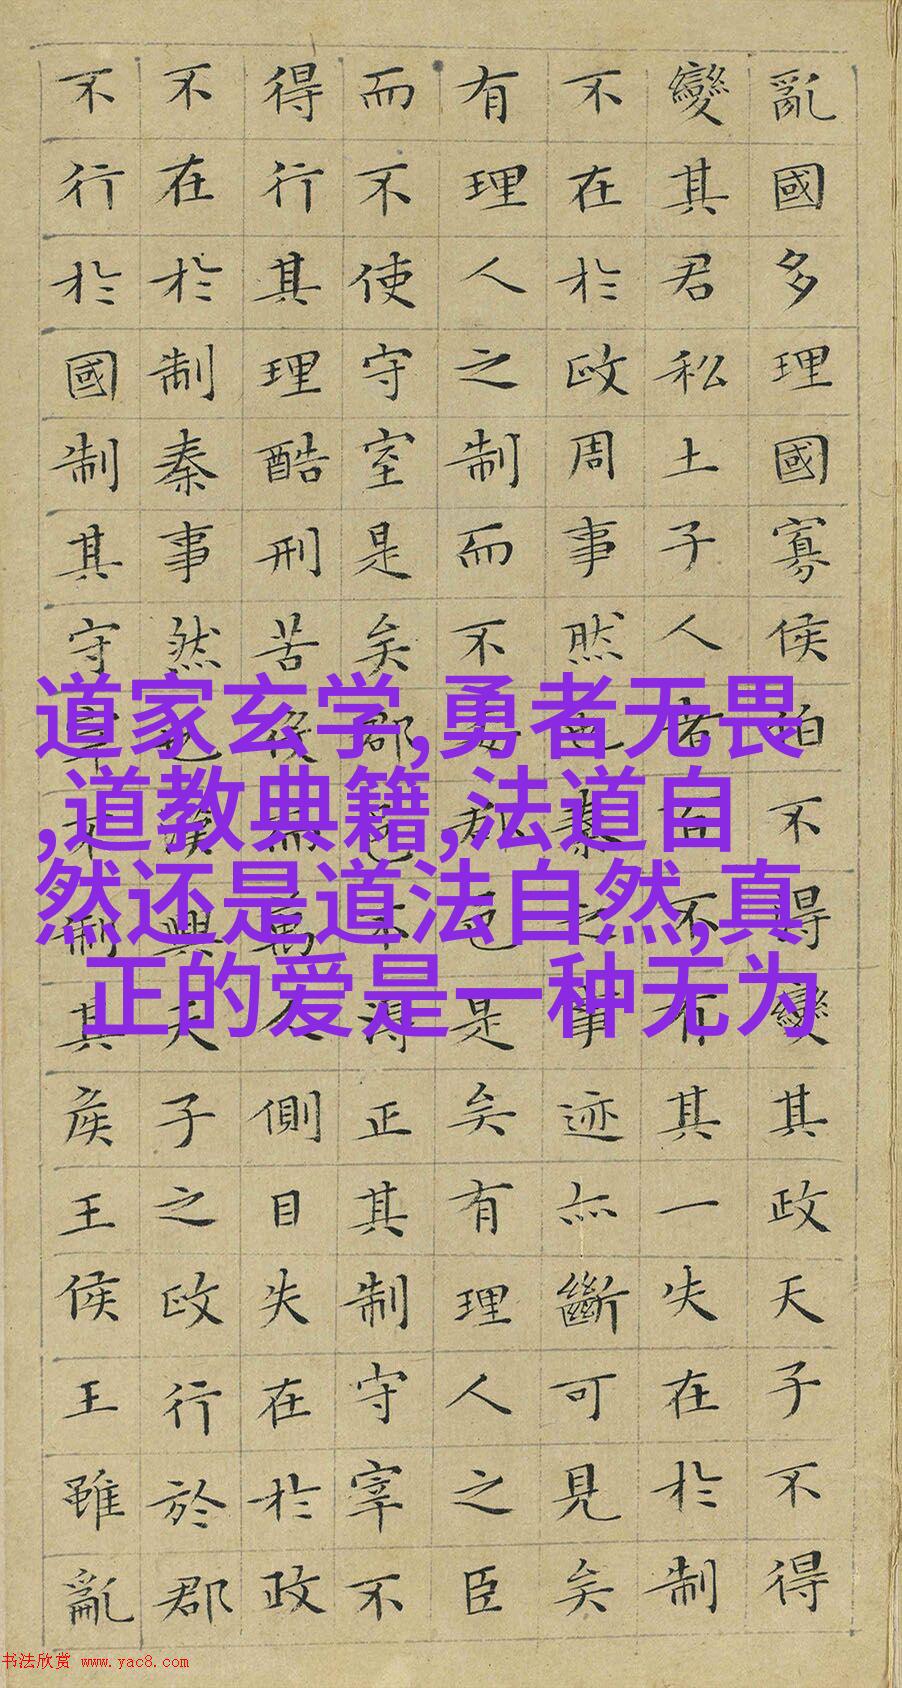 亂國多理國寡侯伯不得變其政天子不得
變其君私土子人者百不有其一失在於制
不在於政周事然也秦之事迹亦斷可見矣
有理人之制而不委郡邑是矣有理人之臣
而不使守室是矣郡邑不得正其制守宰不
得行其理酷刑苦役而萬人側目失在於政
不在於制秦事然也漢興天子之政行於郡
不行於國制其守宰不制其侯王侯王雖亂
道家玄学,勇者无畏
,道教典籍,法道自
然还是道法自然,真
正的爱是一种无为
书法欣赏 www.yac8.com